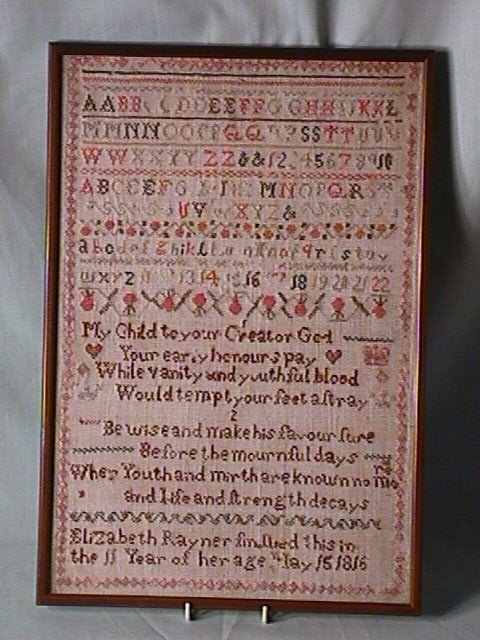 AABB C DDEEFFGGHHIJKKL
MMNNOOPPQQ SSTTUU
WWXXYYZZ&&12 45678910
ABCDEFG I MNOPQR
UV XYZ&
abcdef ghikl pqrstuv
wxyz 13 14 15 16 18 19 20 21 22
My Child to your Creator God
Your early honours pay
While vanity and youthful blood
Would tempt your feet aſtray
2
Be wise and make his favour ſure
Before the mournful days
When Youth and mirth are known no more
and life and ſtrength decays
Elizabeth Rayner finiſhed this in
the 11 Year of her age May 15 1816